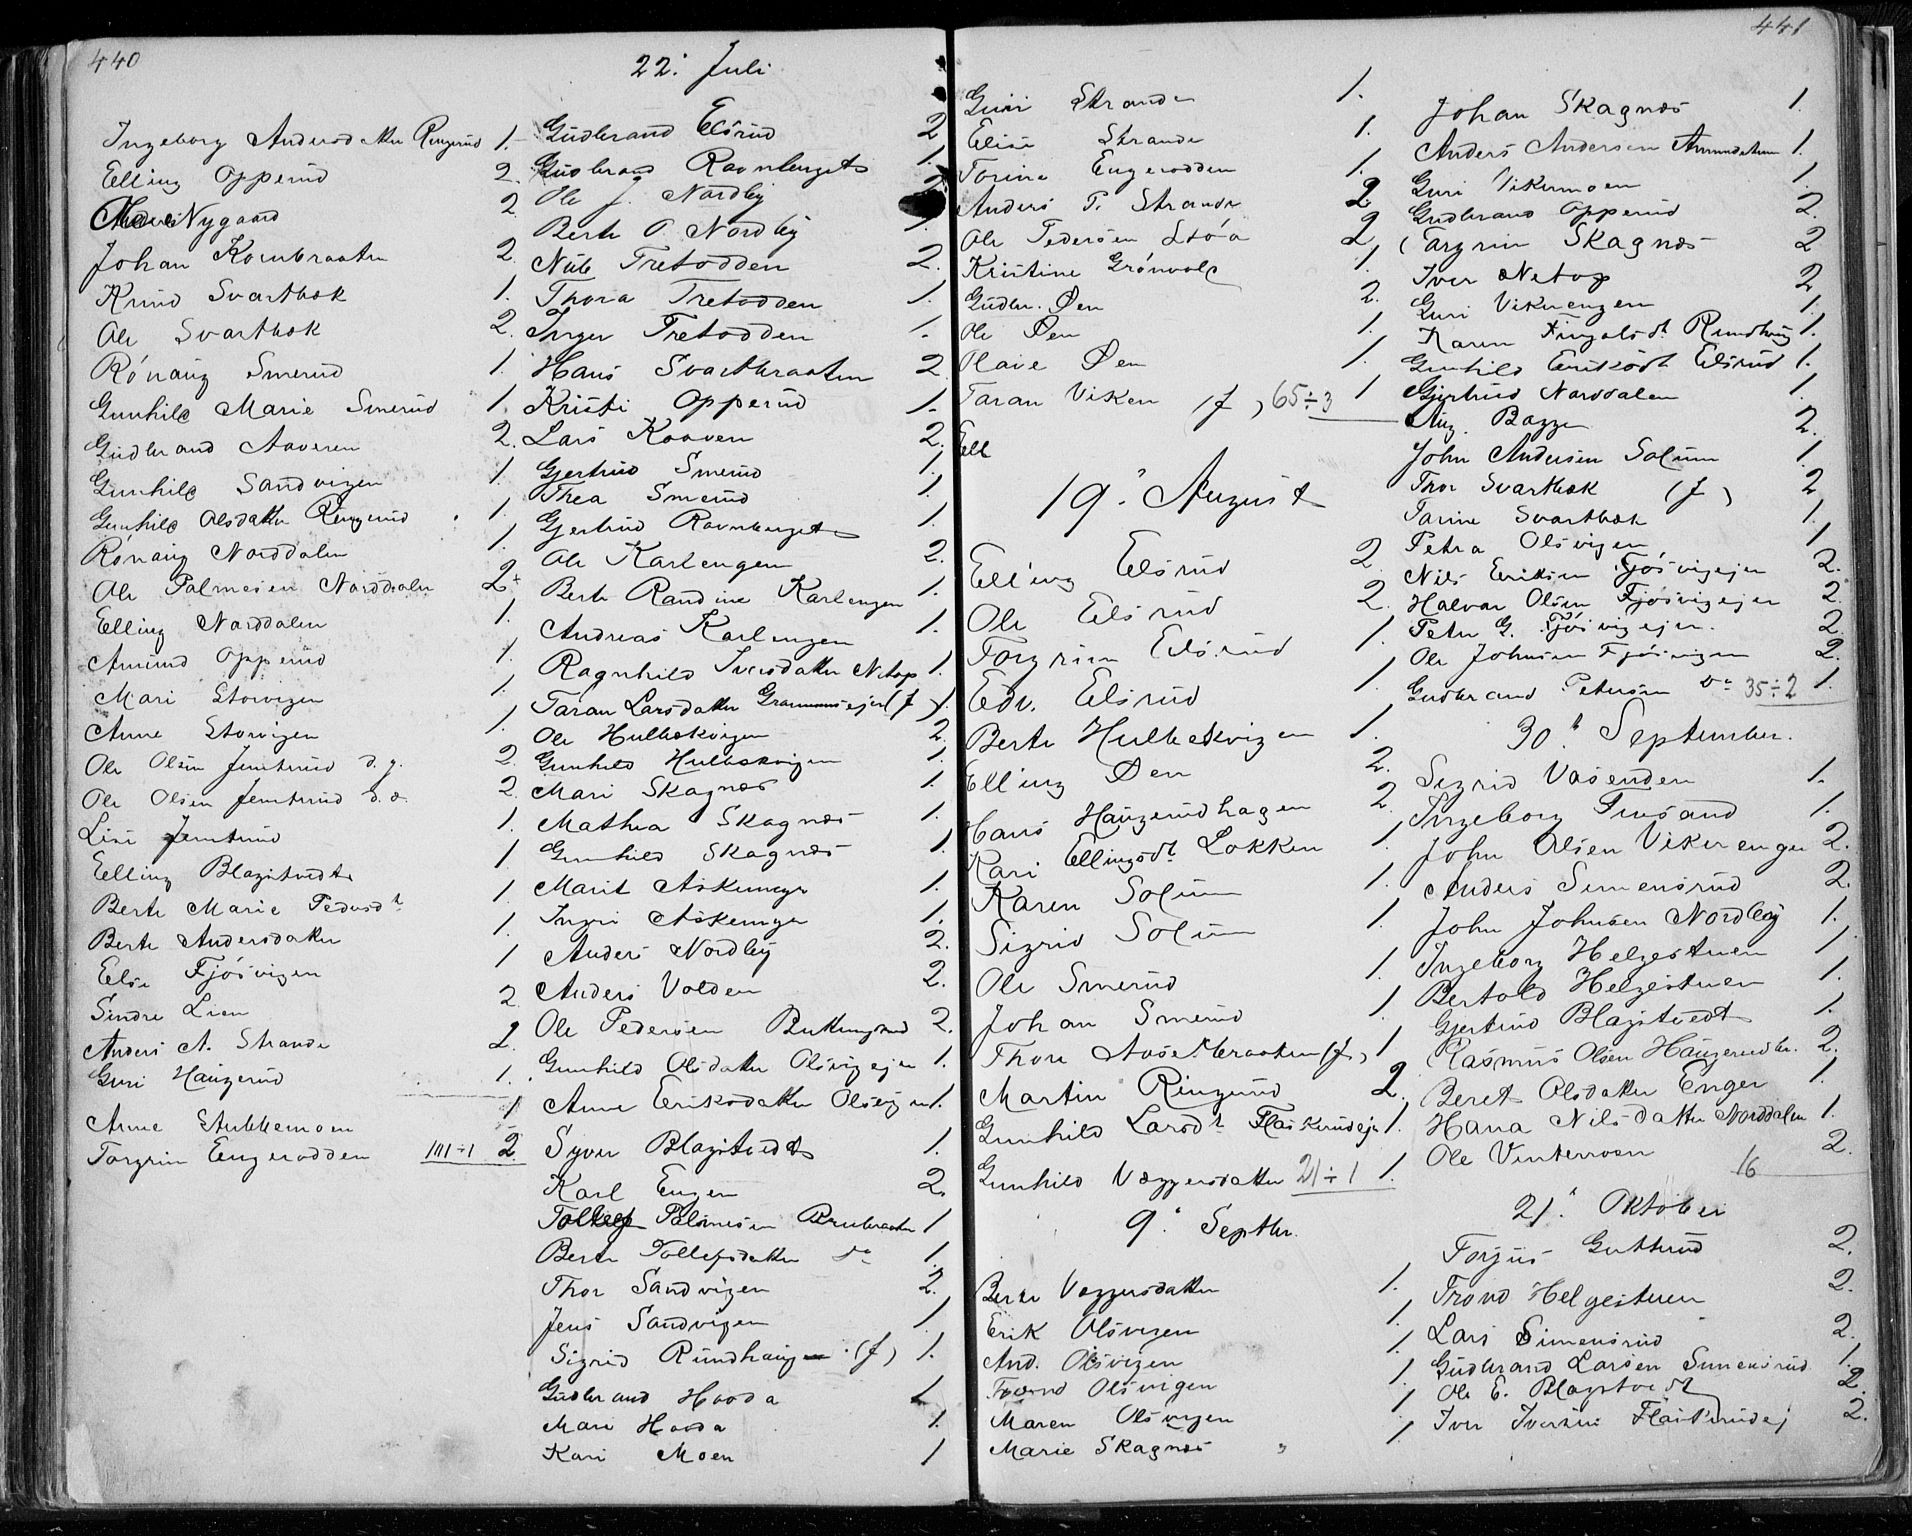 440
22. Juli
Ingeborg Andersdatter Ringerud 1.
Elling Opperud 2.
Nygaard 2
Johan Kornbraaten 2.
Knud Svartbæk 1.
Ole Svartbæk 2.
Rönaug Smerud 1.
Gunhild Marie Smerud 1.
Gudbrand Aaveren 2.
Gunhild Sandvigen 1.
Gunhild Olsdatter Ringerud 1.
Rönaug Norddalen 1.
Ole Palmesen Norddalen 2.
Elling Norddalen 1.
Amund Opperud 1.
Mari Storvigen 1.
Anne Storvigen 1.
Ole Olsen Jemterud d.y. 2.
Ole Olsen Jemterud d.æ. 2.
Lise Jemterud 1.
Elling Blagstvedt 1
Berte Marie Pedersdt 1
Berte Andersdatter 1.
Else Fjösvigen 1
Sindre Lien 2
Anders A. Strande 2.
Guri Haugerud 1.
Anne Stubbemoen 1
Torgrim Engerodden 101÷1 2
Gudbrand Elsrud 2
Gudbrand Ravnberget 1.
Ole J. Nordby 2
Berte O. Nordby 1.
Nub Tretodden 2.
Thora Tretodden 1.
Inger Tretodden 1.
Hans Svartbraaten 2
Kristi Opperud 1.
Lars Kaaven 2.
Gjertrud Smerud 1
Thea Smerud 1.
Gjertrud Ravnberget 1.
Ole Karlengen 2.
Berte Randine Karlengen 1.
Andreas Karlengen 1.
Ragnhild Iversdatter Netop 1.
Taran Larsdatter (f) 1.
Ole Hulbækvigen 2.
Gunhild Hulbækvigen 1.
Mari Skagnæs 1.
Mathea Skagnæs 1.
Gunhild Skagnæs 1.
Marit Askemyr 1.
Ingri Askemyr 1.
Anders Nordby 2.
Anders Volden 2.
Ole Pedersen Buttingsrud 2.
Gunhild Olsdatter Olsvigejer 1.
Anne Eriksdatter Olsvigen 1.
Syver Blagstvedt 1.
Karl Engen 2.
Tollef Palmesen Brubraaten 1
Berte Tollefsdatter do 1.
Thor Sandvigen 2.
Jens Sandvigen 1
Sigrid Rundhaug (f) 1.
Gudbrand Hovda 1
Mari Hovda 1.
Kari Moen 1
441
Guri Strande 1.
Elise Strande 1.
Torine Engerodden 1.
Anders P. Strande 2
Ole Pedersen Stöa 2
Kristine Grönvold 1.
Gudbr. Øen 2.
Ole Øen 1.
Olave Øen 1.
Taran Viken (f) 65÷3 1
Ell
19. August
Elling Elsrud 2.
Ole Elsrud 2.
Torgrim Elsrud 1.
Edv. Elsrud 1
Berte Hulbekvigen 1.
Elling Øen 2.
Hans Haugerudhagen 2.
Kari Ellingsdt Løkken 1.
Karen Solum 1.
Sigrid Solum 1.
Ole Smerud 1.
Johan Smerud 1
Thore Aasebraaten (f) 1
Martin Ringerud 2
Gunhild Larsdt Flaskerudejer 1.
Gunhild Væggersdatter 21÷1 1.
9. Septbr.
Berte Væggersdatter 1.
Erik Olsvigen 1
And. Olsvigen 1
Trond Olsvigen 1
Maren Olsvigen 1
Marie Skagnæs 1.
Johan Skagnæs 1.
Anders Andersen Amundstuen 1.
Guri Vikermoen 1.
Gudbrand Opperud 2.
Torgrim Skagnæs 2
Iver Netop 2
Guri Vikerengen 1.
Karen Rundhaug 1.
Gunhild Eriksdt Elsrud 1.
Gjertrud Norddalen 1.
Aug. Bagge 2.
John Andersen Solum 1.
Thor Svartbæk (f) 2
Tarine Svartbæk 1.
Petra Olsvigen 1
Nils Eriksen Fjösvigejer 2.
Halvor Olsen Fjösvigejer 2.
Peter G. Fjösvigejer. 2.
Ole Johnsen Fjösvigen 2.
Gudbrand Petersen do 35÷2 1.
30. September.
Sigrid Vasenden 1.
Ingeborg Trusand 1.
John Olsen Vikerengen 2.
Anders Semensrud 2.
John Johnsen Nordby 1.
Ingeborg Helgestuen 1.
Bertold Helgestuen 1.
Gjertrud Blagstvedt 1.
Rasmus Olsen Haugerudbr. 2.
Beret Olsdatter Enger 1.
Hana Nilsdatter Norddalen 1.
Ole Vinterroen 16 2.
21. Oktober
Torjus Gutterud 2.
Trond Helgestuen 2.
Lars Simensrud 2.
Gudbrand Larsen Simensrud 1.
Ole E. Blagstvedt 2.
Iver Iversen Flaskerudej 2.